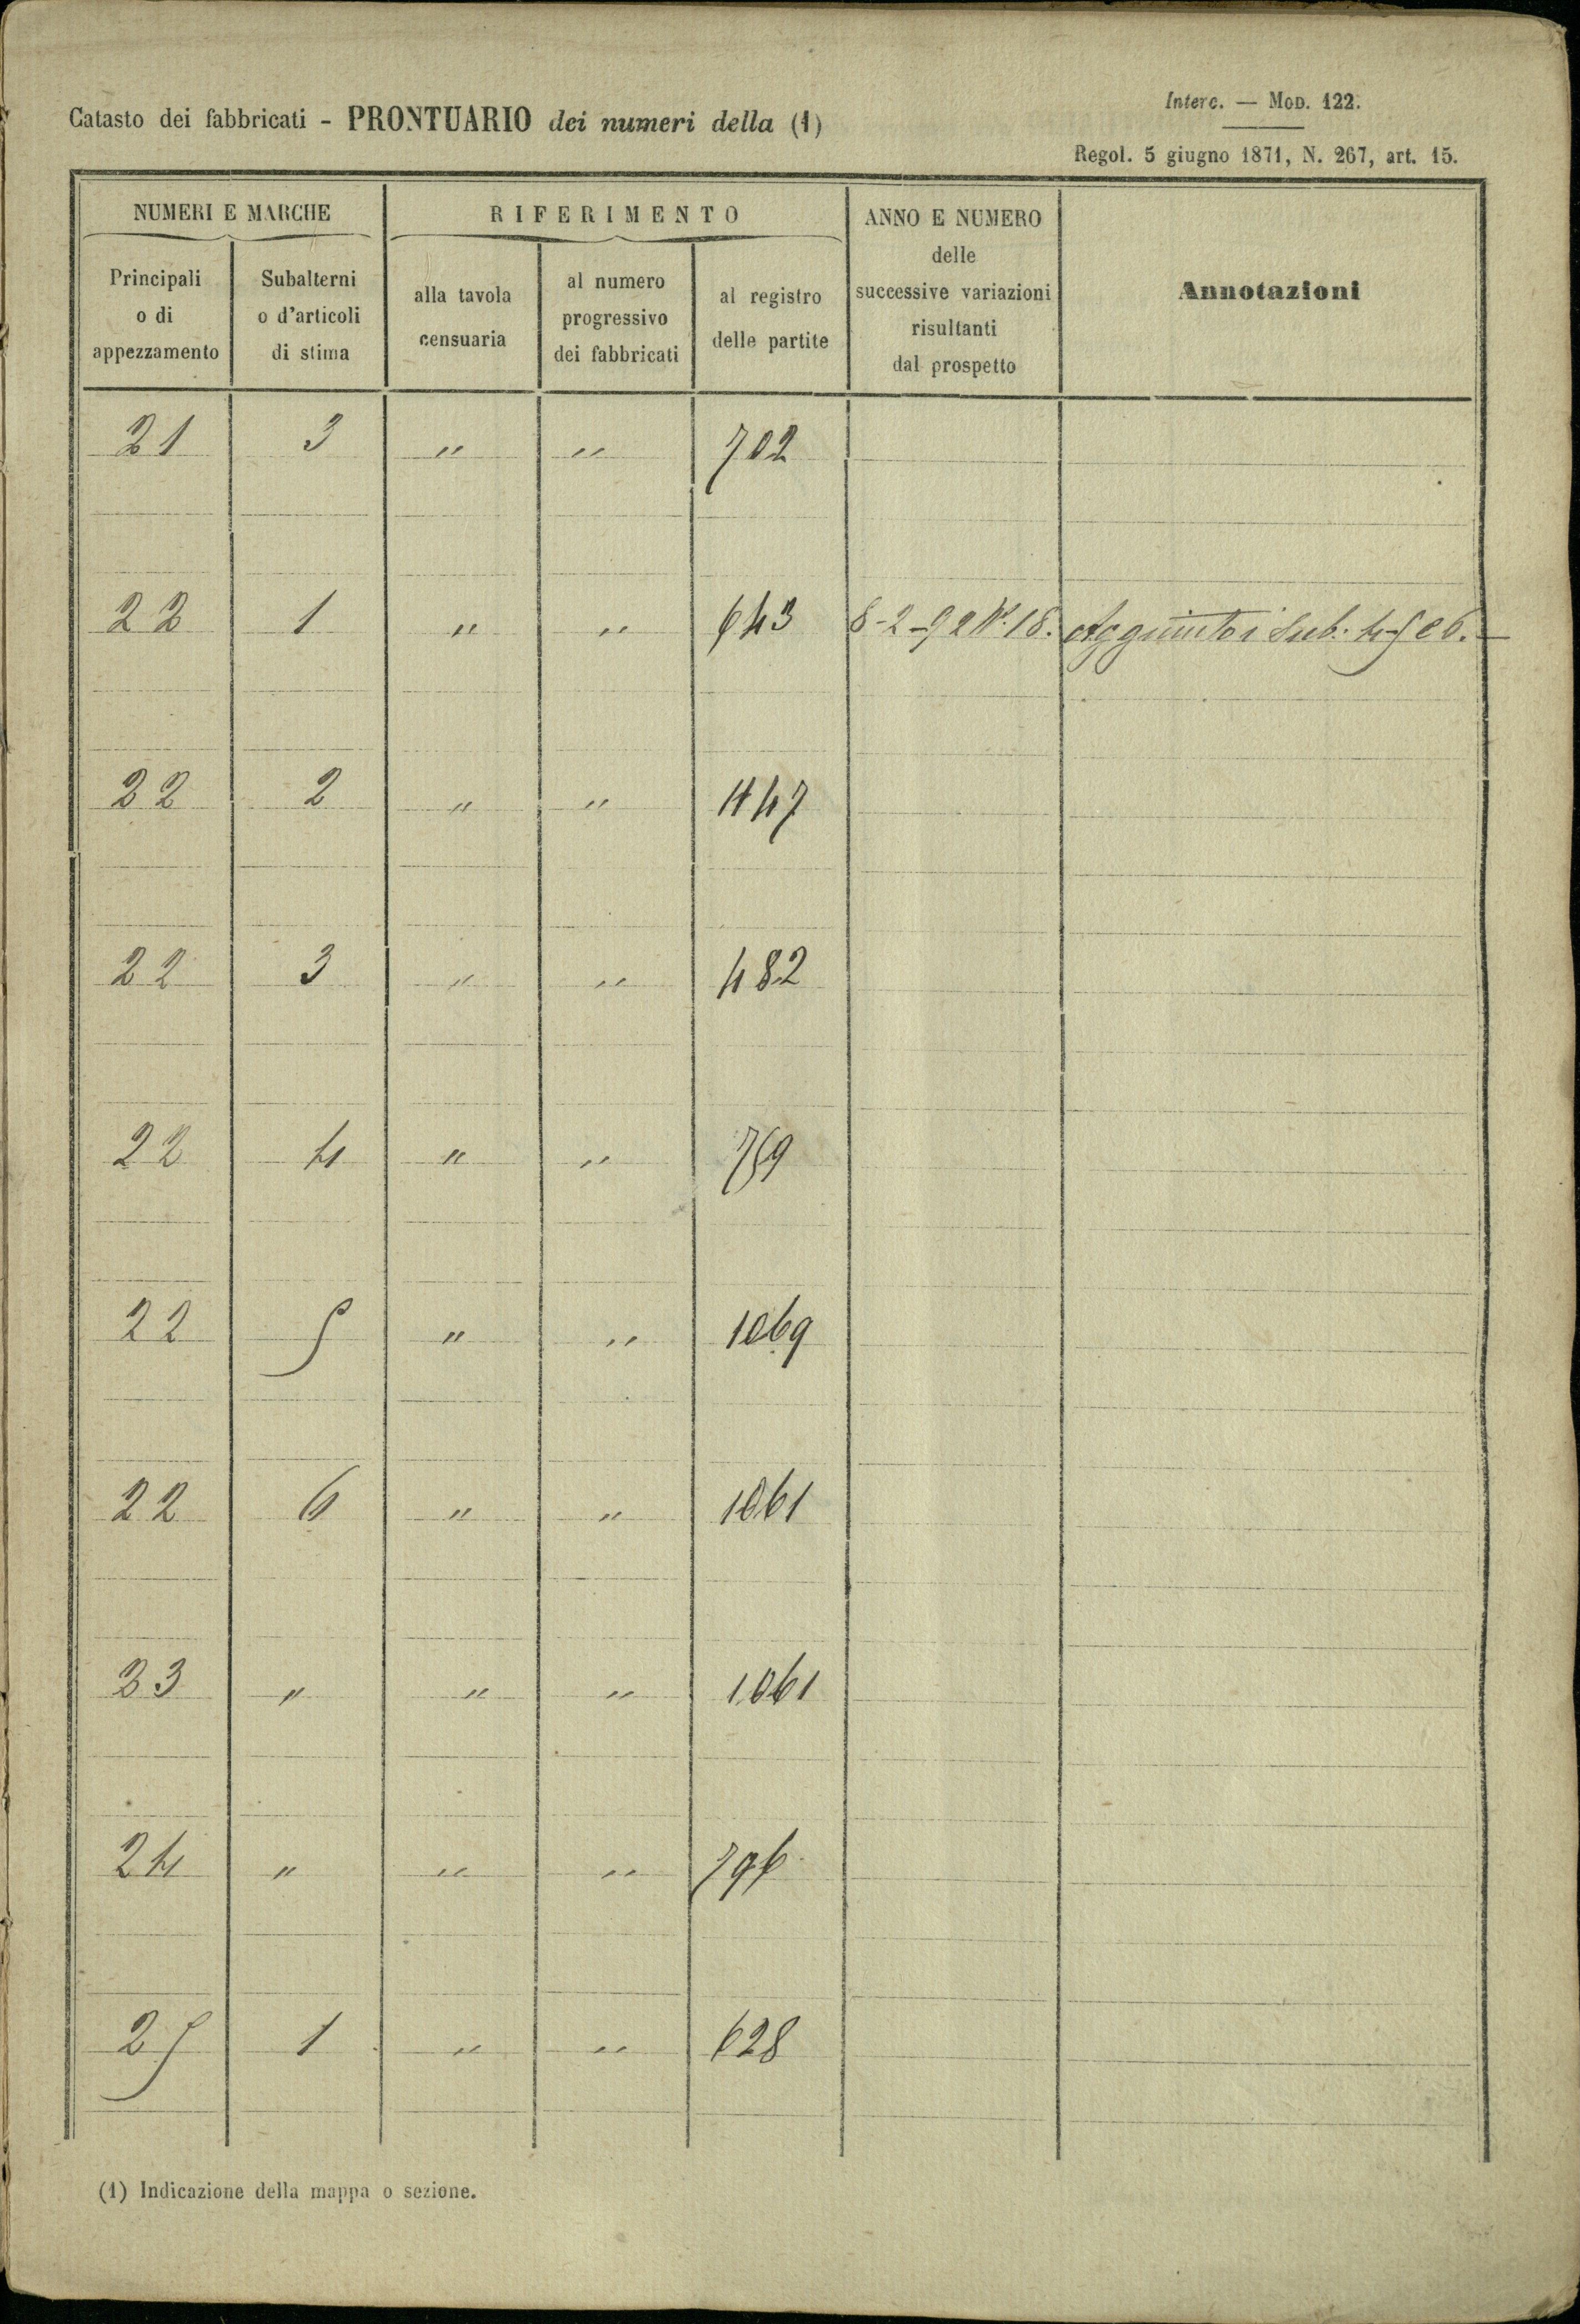 Catasto dei fabbricati - PRONTUARIO dei numeri della (1)
Interc. — Mod. 122.
Regol. 5 giugno 1871, N. 267, art. 15.
NUMERI E MARCHE
RIFERIMENTO
ANNO E NUMERO
delle
successive variazioni
risultanti
dal prospetto
Annotazioni
Principali
o di
appezzamento
Subalterni
o d'articoli
di stima
alla tavola
censuaria
al numero
progressivo
dei fabbricati
al registro
delle partite
21 3 " " 702
22 1 " " 643 8-2-92 N. 18. Aggiunto i Sub. 4-5 e 6. —
22 2 " " 447
22 3 " " 482
22 4 " " 759
22 5 " " 1069
22 6 " " 1061
23 " " " 1061
24 " " " 796
25 1 " " 628
(1) Indicazione della mappa o sezione.